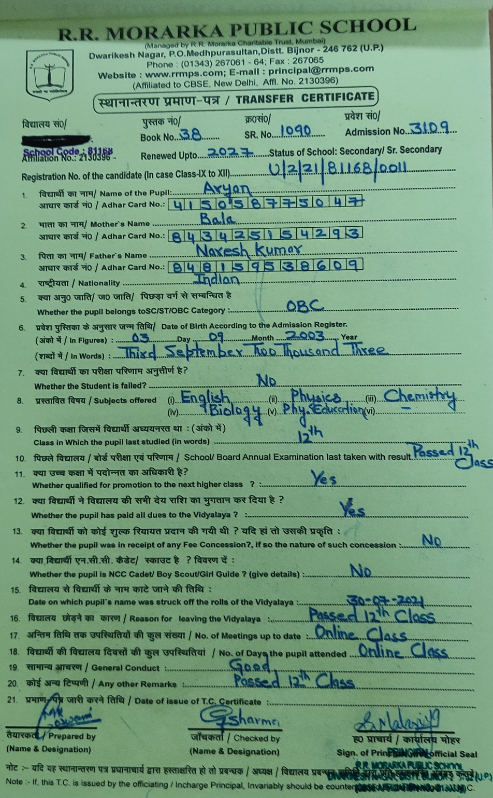 R.R. MORARKA PUBLIC SCHOOL
(Managed by R.R. Morarka Charitable Trust, Mumbai)
Dwarikesh Nagar, P.O.Medhpurasultan,Distt. Bijnor - 246 762 (U.P.)
Phone : (01343) 267061 - 64; Fax : 267065
Website : www.rrmps.com; E-mail : principal@rrmps.com
(Affiliated to CBSE, New Delhi, Affl. No. 2130396)
स्थानान्तरण प्रमाण-पत्र / TRANSFER CERTIFICATE
विद्यालय सं0/ पुस्तक नं0/ क्र0सं0/ प्रवेश सं0/
Book No. 38 SR. No. 1090 Admission No. 3109
School Code : 81168
Affiliation No.: 2130396 Renewed Upto 2027 Status of School: Secondary/ Sr. Secondary
Registration No. of the candidate (In case Class-IX to XII) U/2/21/81168/0011
1. विद्यार्थी का नाम/ Name of the Pupil: Aryan
आधार कार्ड नं0 / Adhar Card No.: 415058775047
2. माता का नाम/ Mother's Name Bala
आधार कार्ड नं0 / Adhar Card No.: 843425154293
3. पिता का नाम/ Father's Name Naresh Kumar
आधार कार्ड नं0 / Adhar Card No.: 848159538609
4. राष्ट्रीयता / Nationality Indian
5. क्या अनु0 जाति/ ज0 जाति/ पिछड़ा वर्ग से सम्बन्धित है
Whether the pupil belongs toSC/ST/OBC Category : OBC
6. प्रवेश पुस्तिका के अनुसार जन्म तिथि/ Date of Birth According to the Admission Register.
(अंको में / In Figures) : 03 Day 09 Month 2003 Year
(शब्दों में / In Words) : Third September Two Thousand Three
7. विद्यार्थी का परीक्षा परिणाम अनुत्तीर्ण है?
Whether the Student is failed? No
8. प्रस्तावित विषय / Subjects offered (i) English (ii) Physics (iii) Chemistry
(iv) Biology (v) Phy. Education (vi) –
9. पिछली कक्षा जिसमें विद्यार्थी अध्ययनरत था : (अंको में)
Class in Which the pupil last studied (in words) 12th
10. पिछले विद्यालय / बोर्ड परीक्षा एवं परिणाम / School/ Board Annual Examination last taken with result. Passed 12th Class
11. क्या उच्च कक्षा में पदोन्नत का अधिकारी है?
Whether qualified for promotion to the next higher class ? : Yes
12. क्या विद्यार्थी ने विद्यालय की सभी देय राशि का भुगतान कर दिया है ?
Whether the pupil has paid all dues to the Vidyalaya ? : Yes
13. क्या विद्यार्थी को कोई शुल्क रियायत प्रदान की गयी थी ? यदि हां तो उसकी प्रकृति :
Whether the pupil was in receipt of any Fee Concession?, If so the nature of such concession : No
14. क्या विद्यार्थी एन.सी.सी. कैडेट/ स्काउट है ? विवरण दें :
Whether the pupil is NCC Cadet/ Boy Scout/Girl Guide ? (give details) : No
15. विद्यालय से विद्यार्थी के नाम काटे जाने की तिथि :
Date on which pupil's name was struck off the rolls of the Vidyalaya : 30-07-2021
16. विद्यालय छोड़ने का कारण / Reason for leaving the Vidyalaya : Passed 12th Class
17. अन्तिम तिथि तक उपस्थितियों की कुल संख्या / No. of Meetings up to date : Online Class
18. विद्यार्थी की विद्यालय दिवसों की कुल उपस्थितियां / No. of Days the pupil attended Online Class
19. सामान्य आचरण / General Conduct : Good
20. कोई अन्य टिप्पणी / Any other Remarks : Passed 12th Class
21. प्रमाण पत्र जारी करने तिथि / Date of issue of T.C. Certificate :
G sharma
तैयारकर्ता / Prepared by जाँचकर्ता / Checked by ह0 प्राचार्य / कार्यालय मोहर
(Name & Designation) (Name & Designation) Sign. of Principal official Seal
PRINCIPAL
R.R. MORARKA PUBLIC SCHOOL
नोट :- यदि यह स्थानान्तरण पत्र प्रधानाचार्य द्वारा हस्ताक्षरित हो तो प्रबन्धक / अध्यक्ष / विद्यालय
Note :- If, this T.C. is issued by the officiating / Incharge Principal, Invariably should be